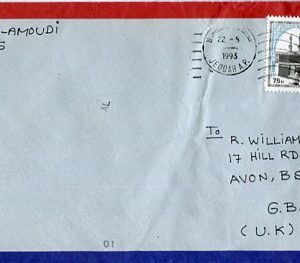 -AMOUDI
S
22-5
1993
JEDDAH A.P.
75H
AL
To
R. WILLIAM
17 HILL RD
AVON, BS
G.B
(U.K)
01